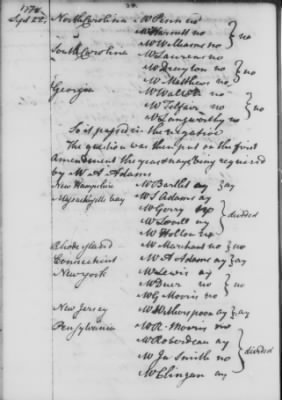 1778.
Sept 22.
North Carolina Mr Penn no
Mr Harnett no } no
Mr Williams no
South Carolina Mr Laurens no
Mr Drayton no } no
Mr Mathews no
Georgia Mr Walton no
Mr Telfair no } no
Mr Langworthy no
So it passed in the negative
The question was then put on the first
Amendment the yeas & nays being required
by Mr S Adams
New Hampshire Mr Bartlet ay } ay
Massachusetts bay Mr S Adams ay
Mr Gerry ay
Mr Lovell ay } divided
Mr Holten no
Rhode island Mr Marchant no } no
Connecticut Mr A Adams ay } ay
New york Mr Lewis ay
Mr Duer no } no
Mr G Morris no
New Jersey Mr Witherspoon ay } ay
Pensylvania Mr R. Morris no
Mr Roberdeau ay
Mr Jas Smith no } divided
Mr Clingan ay